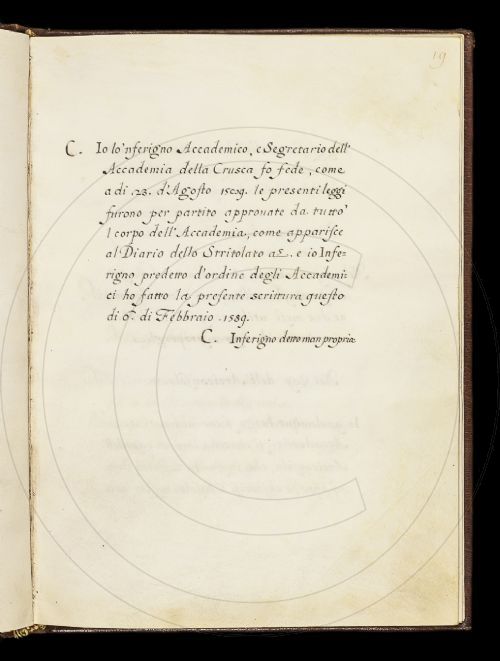 19
C. Io lo'nferigno Accademico, e Segretario dell'
Accademia della Crusca fo fede, come
a di .23. d'Agosto 1589. le presenti leggi
furono per partito approuate da tutto'
l corpo dell'Accademia, come apparisce
al Diario dello Stritolato a . e io Infe=
rigno predetto d'ordine degli Accademi=
ci ho fatto la presente scrittura questo
di 6. di Febbraio .1589.
C. Inferigno detto man propria